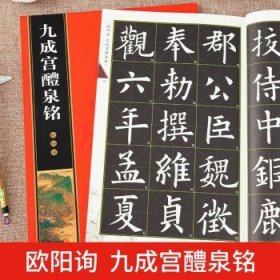 九成宫醴泉铭
挍侍中鉅鹿
郡公臣魏徵
奉勅撰維貞
觀六年孟夏
欧阳询 九成宫醴泉铭